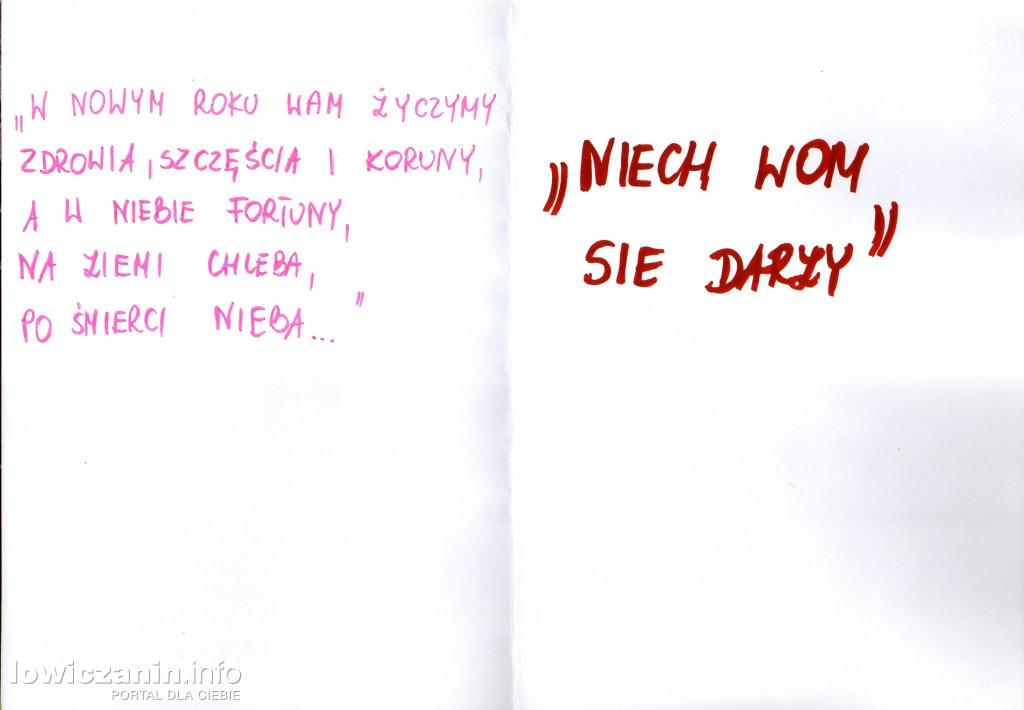 „W NOWYM ROKU WAM ŻYCZYMY
ZDROWIA, SZCZĘŚCIA I KORUNY,
A W NIEBIE FORTUNY,
NA ZIEMI CHLEBA,
PO ŚMIERCI NIEBA..."
„NIECH WOM
SIE DARZY"
lowiczanin.info
PORTAL DLA CIEBIE